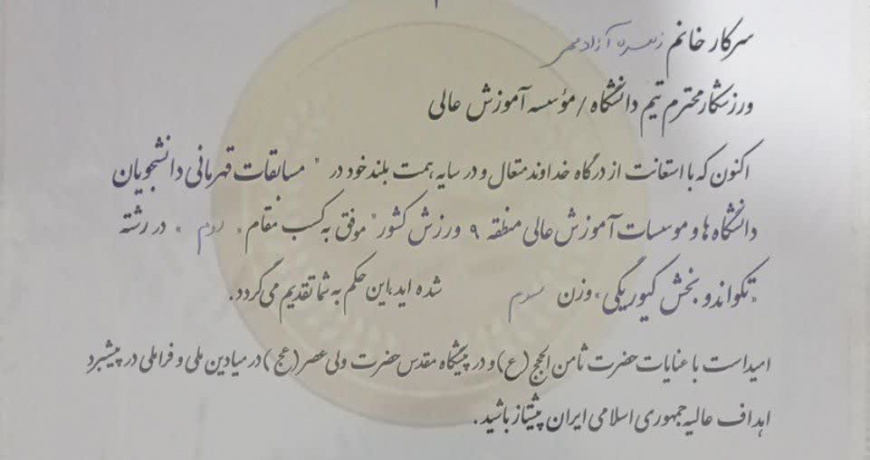 سرکار خانم زهره آزادمهر
ورزشکار محترم تیم دانشگاه / مؤسسه آموزش عالی
اکنون که با استعانت از درگاه خداوند متعال و در سایه همت بلند خود در " مسابقات قهرمانی دانشجویان
دانشگاه ها و موسسات آموزش عالی منطقه ۹ ورزش کشور" موفق به کسب مقام " دوم " در رشته
"تکواندو بخش کیوریگی" وزن سوم شده اید، این حکم به شما تقدیم می گردد.
امید است با عنایات حضرت ثامن الحجج (ع) و در پیشگاه مقدس حضرت ولی عصر (عج) در میادین ملی و فراملی در پیشبرد
اهداف عالیه جمهوری اسلامی ایران پیشتاز باشید.